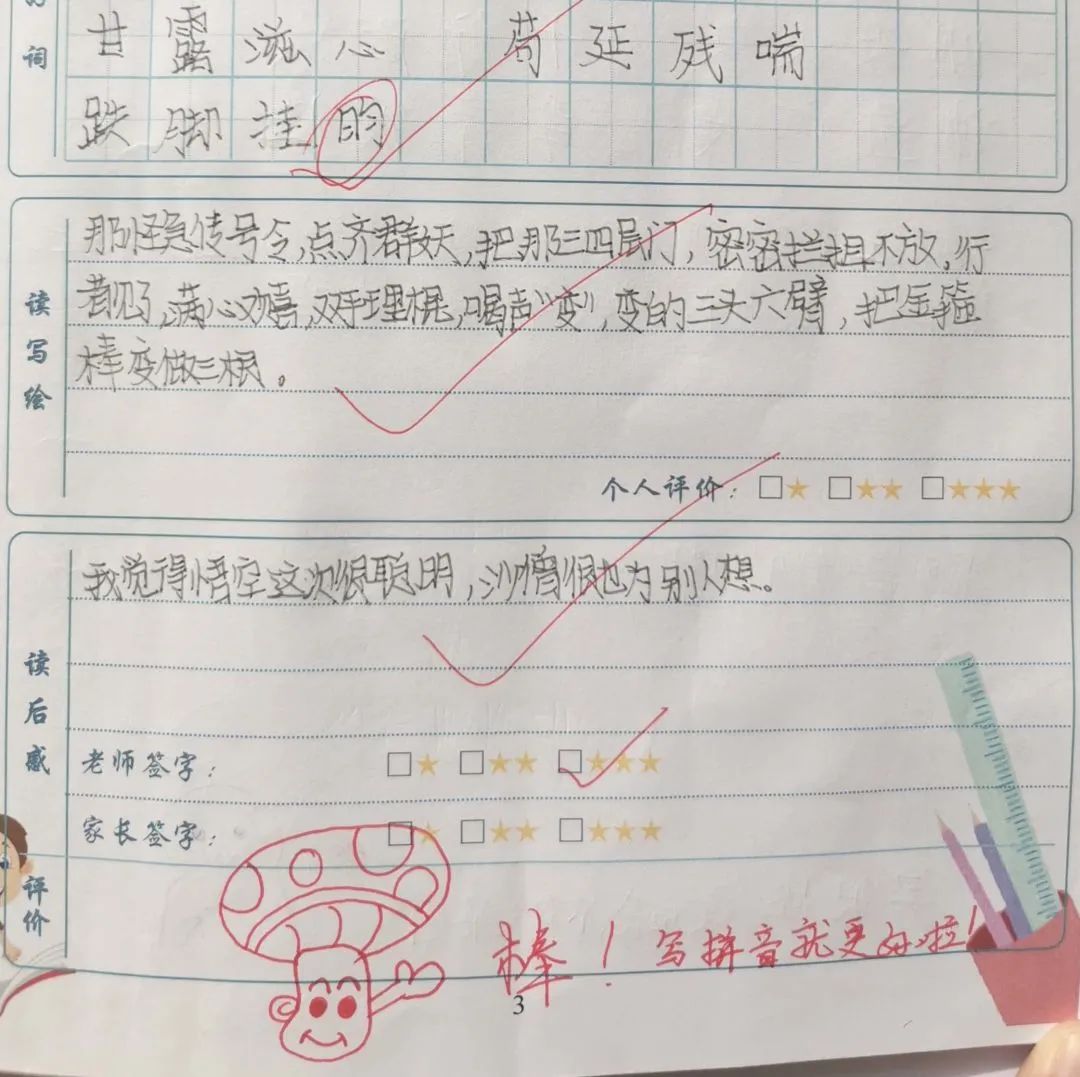 词
甘露滋心 苟延残喘
跌脚挂的
读写绘
那怪急传号令,点齐群妖,把那三四层门,密密拦阻不放,行
者见了,满心欢喜,双手理棍,喝声“变”,变的三头六臂,把金箍
棒变做三根。
个人评价: □★ □★★ □★★★
读后感
我觉得悟空这次很聪明,沙僧很也为别人想。
老师签字: □★ □★★ □★★★
家长签字: □★ □★★ □★★★
评价
棒！写拼音就更好啦！
3